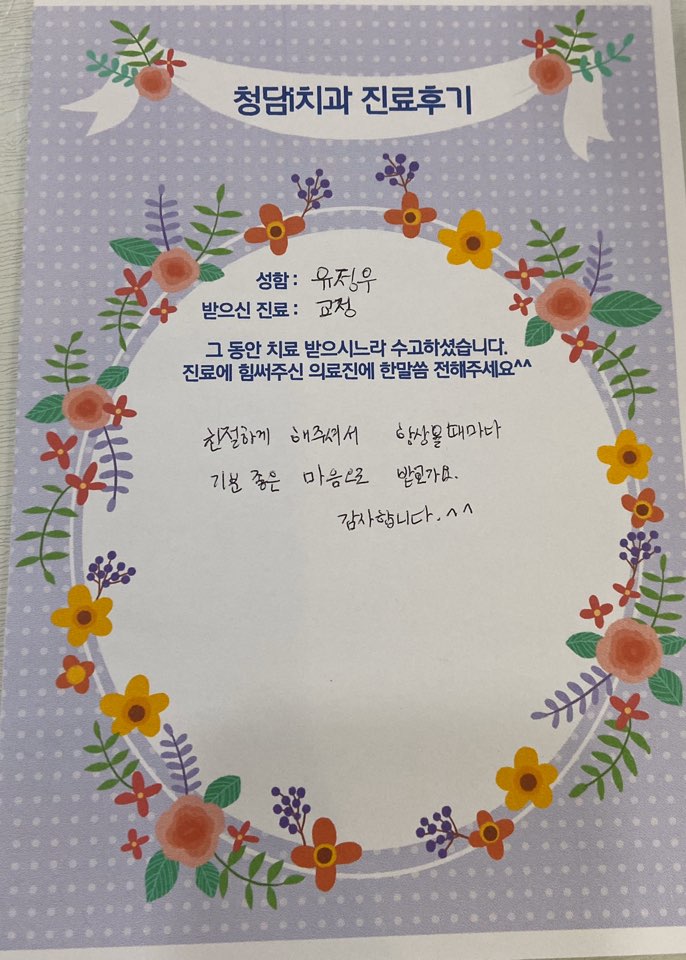 청담i치과 진료후기
성함 : 유정우
받으신 진료 : 교정
그 동안 치료 받으시느라 수고하셨습니다.
진료에 힘써주신 의료진에 한말씀 전해주세요^^
친절하게 해주셔서 항상올때마다
기분 좋은 마음으로 받고가요.
감사합니다.^^